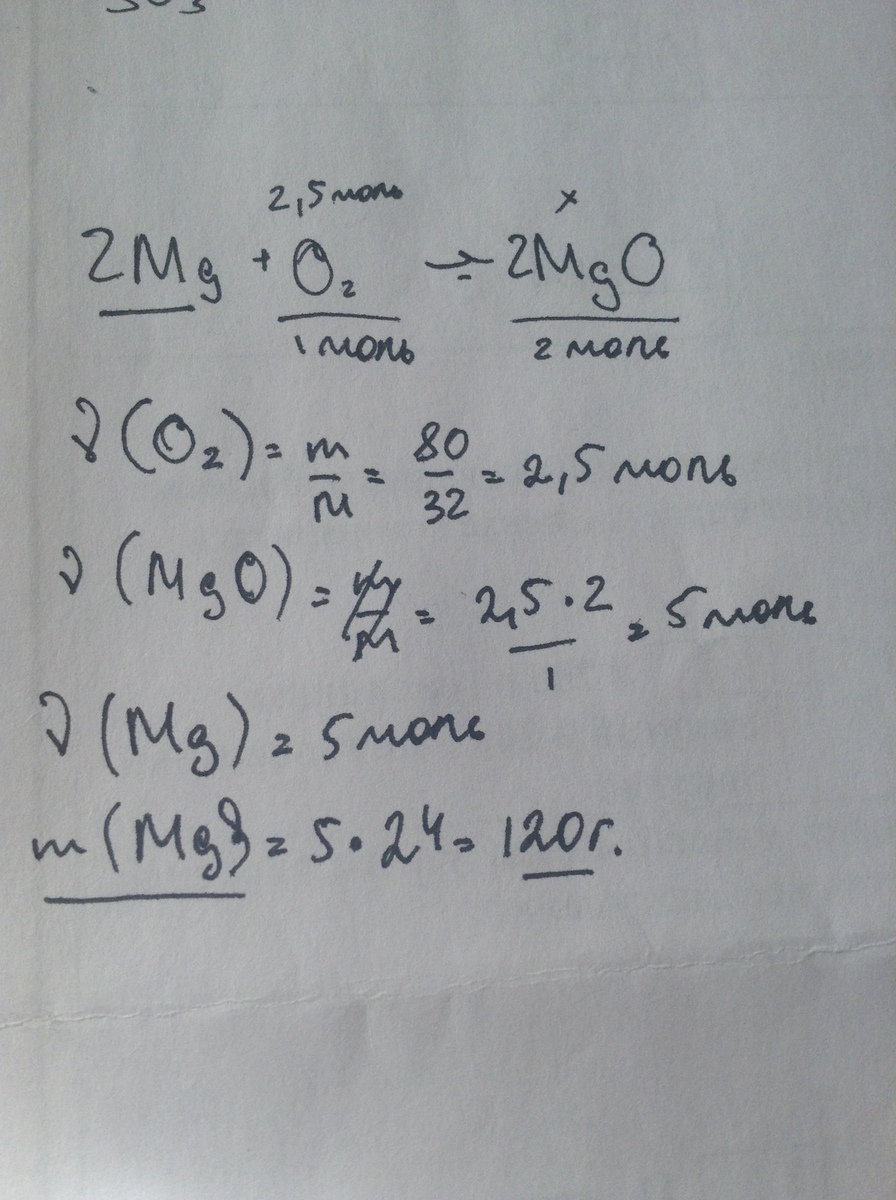 SO₃
2,5 моль x
2Mg + O₂ → 2MgO
1 моль 2 моль
ν(O₂) = m/M = 80/32 = 2,5 моль
ν(MgO) = m/M = 2,5·2/1 = 5 моль
ν(Mg) = 5 моль
m(Mg) = 5·24 = 120г.